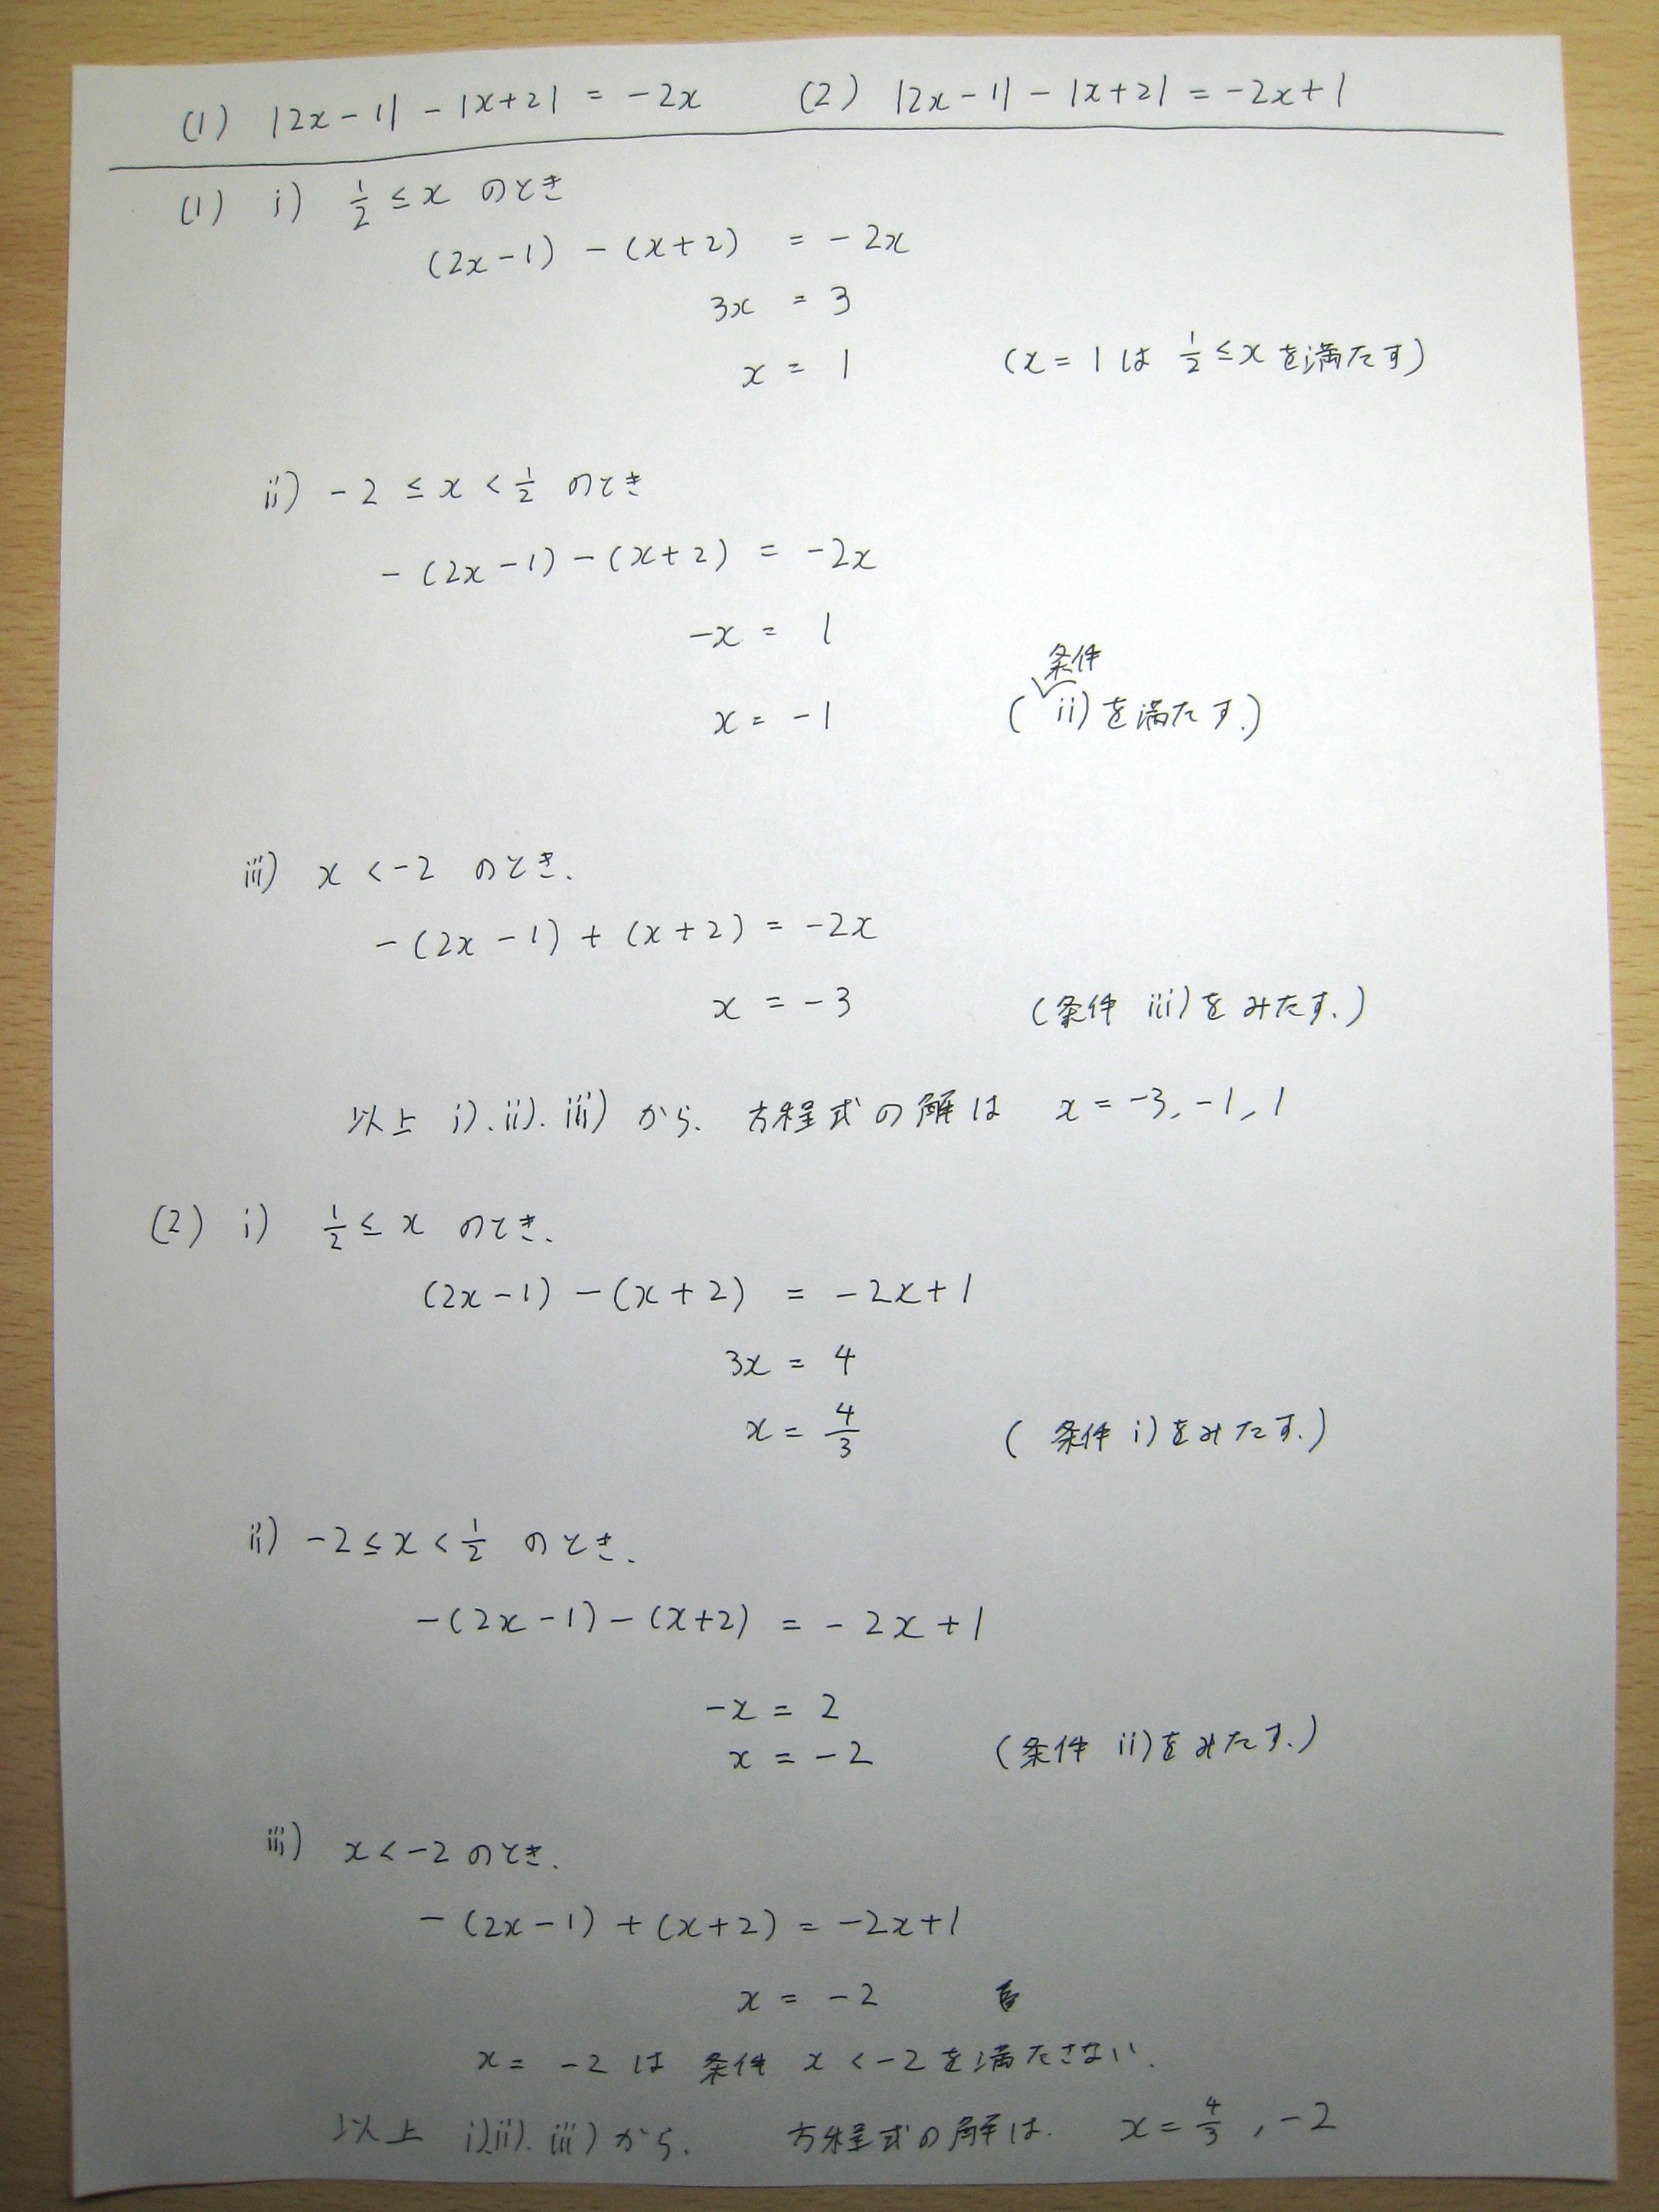 (1) |2x-1| - |x+2| = -2x (2) |2x-1| - |x+2| = -2x+1
(1) i) 1/2 ≤ x のとき
(2x-1) - (x+2) = -2x
3x = 3
x = 1 (x=1は 1/2≤xを満たす)
ii) -2 ≤ x < 1/2 のとき
-(2x-1)-(x+2) = -2x
-x = 1
x = -1 (条件ii)を満たす.)
iii) x < -2 のとき.
-(2x-1)+(x+2) = -2x
x = -3 (条件 iii)をみたす.)
以上 i).ii).iii)から. 方程式の解は x=-3,-1,1
(2) i) 1/2 ≤ x のとき.
(2x-1)-(x+2) = -2x+1
3x = 4
x = 4/3 (条件 i)をみたす.)
ii) -2≤x<1/2 のとき.
-(2x-1)-(x+2) = -2x+1
-x = 2
x = -2 (条件 ii)をみたす.)
iii) x<-2のとき.
-(2x-1)+(x+2) = -2x+1
x = -2
x = -2 は 条件 x <-2を満たさない.
以上 i).ii).iii)から. 方程式の解は. x=4/3,-2